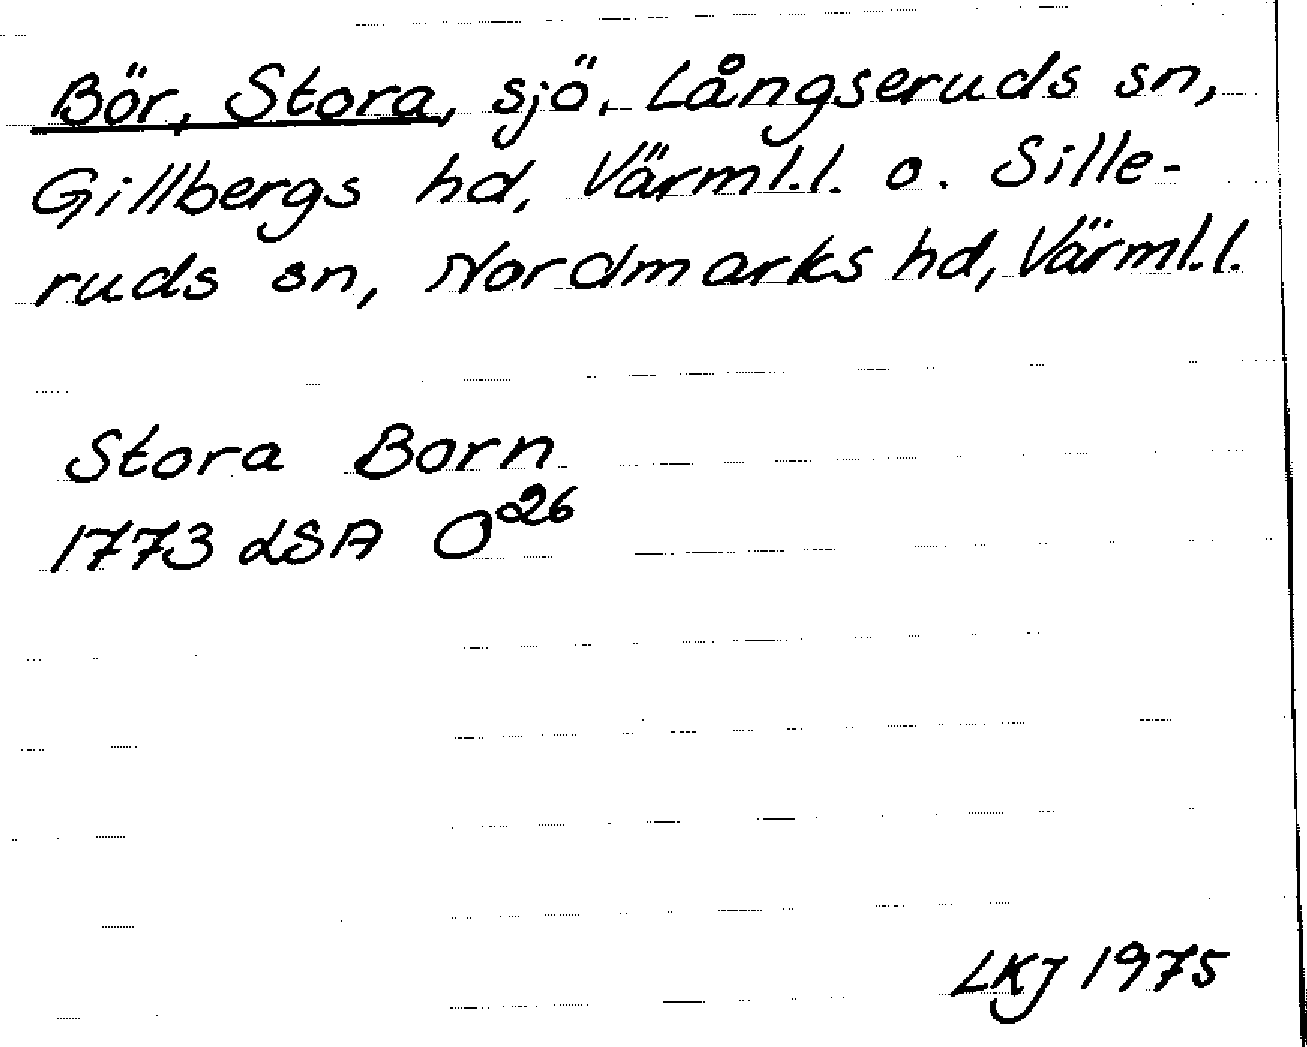 Bör, Stora, sjö. Långseruds sn,
Gillbergs hd, Värml.l. o. Sille-
ruds sn, Nordmarks hd, Värml.l.
Stora Born
1773 LSA O°26
LKJ 1975